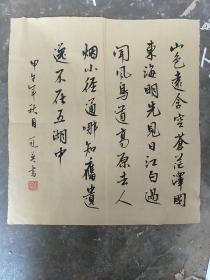 山色遠含空蒼茫澤國
東海明先見日江白過
聞風鳥道高原去人
烟小徑通哪知舊遺
逸不在五湖中
甲午年秋月冠英書